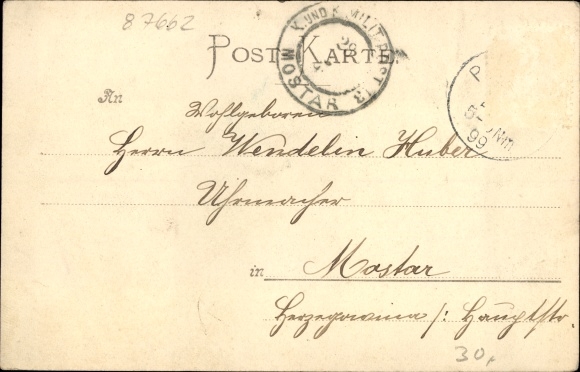 87662
POSTKARTE.
K. UND K. MILIT. POST
MOSTAR
99
An
Wohlgeboren
Herrn Wendelin Huber
Uhrmacher
in Mostar
Herzegowina /: Hauptstr.
30,